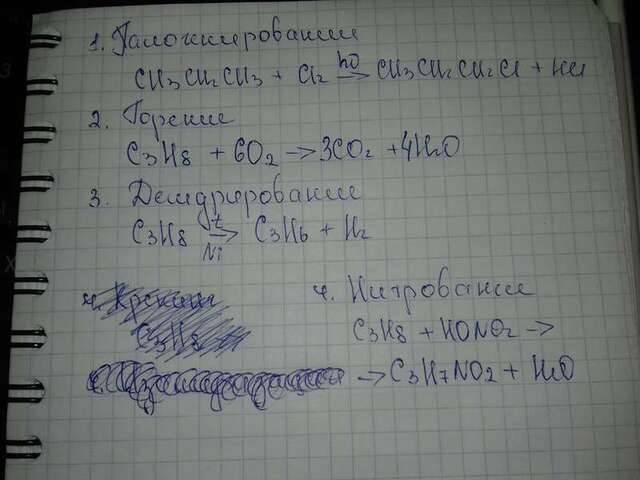 1. Галогенирование
CH3CH2CH3 + Cl2 hν -> CH3CH2CH2Cl + HCl
2. Горение
C3H8 + 6O2 -> 3CO2 + 4H2O
3. Дегидрирование
C3H8 Ni -> C3H6 + H2
4. Нитрование
C3H8 + HONO2 ->
-> C3H7NO2 + H2O